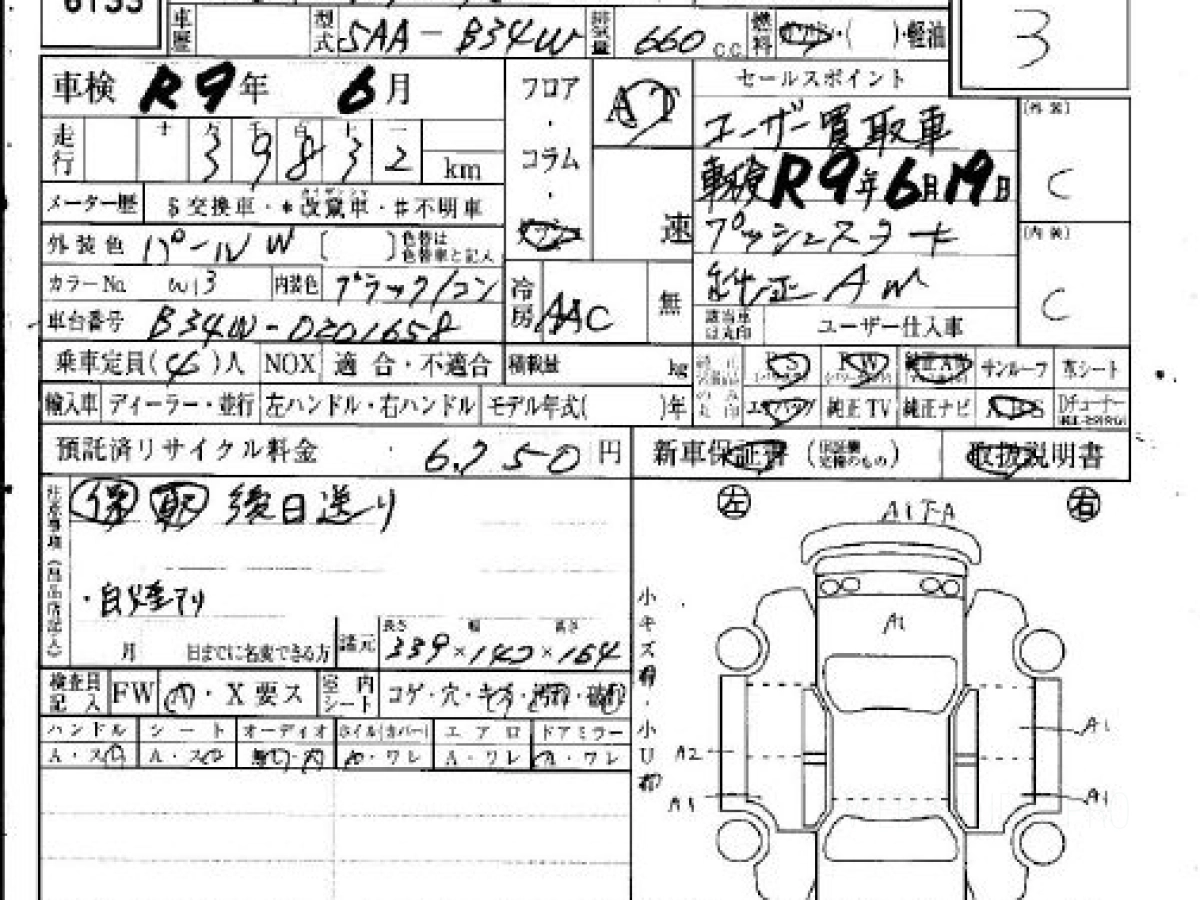 6155
車歴 型式 5AA-B34W 排気量 660 C.C. 燃料 ガソリン・( )・軽油
3
車検 R9年 6月
フロア・コラム・
AT
速
セールスポイント
ユーザー買取車
車検R9年6月19日
プッシュスタート
純正AW
該当車は丸印 ユーザー仕入車
[外装]
C
[内装]
C
走行 十 万 千 百 十 一
3 9 8 3 2 km
メーター歴 $交換車・*改竄車・#不明車
外装色 パールW [ ] 色替は色替車と記入
カラーNo W13 内装色 ブラック/コン
冷房 AAC 無
車台番号 B34W-0201658
乗車定員(4)人 NOX 適合・不適合 積載量 kg
PS PW 純正AW サンルーフ 革シート
輸入車 ディーラー・並行 左ハンドル・右ハンドル モデル年式( )年
エアバッグ 純正TV 純正ナビ ABS Dチューナー
預託済リサイクル料金 6,750円
新車保証書 取扱説明書
保 取 後日送り
・自煙アリ
月 日までに名変できる方
諸元 長さ 339×幅 147×高さ 164
検査員記入 FW A・X要ス 室内シート コゲ・穴・キズ・汚れ・破れ
ハンドル シート オーディオ ホイル(カバー) エアロ ドアミラー
A・スレ A・スレ 無・内 A・ワレ A・ワレ A・ワレ
左 右
小キズ有・小U有
A1
A1
A2
A1
A1